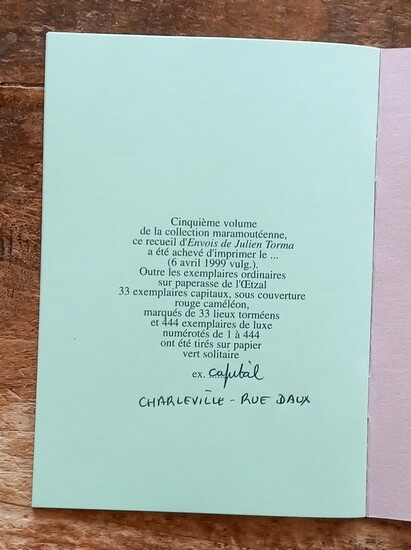 Cinquième volume
de la collection maramoutéenne,
ce recueil d'Envois de Julien Torma
a été achevé d'imprimer le ...
(6 avril 1999 vulg.).
Outre les exemplaires ordinaires
sur paperasse de l'Œtzal
33 exemplaires capitaux, sous couverture
rouge caméléon,
marqués de 33 lieux torméens
et 444 exemplaires de luxe
numérotés de 1 à 444
ont été tirés sur papier
vert solitaire
ex. capital
CHARLEVILLE - RUE DAUX